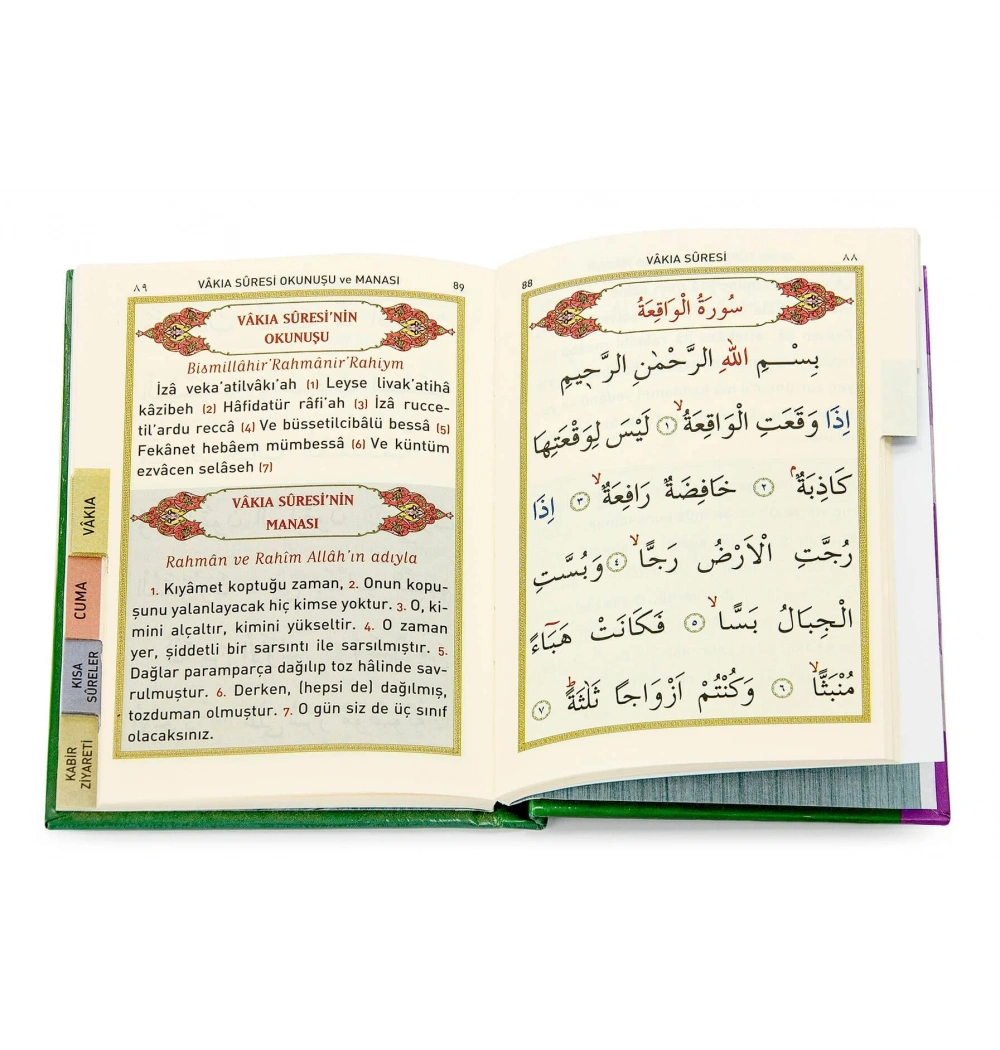 ٨٨
VÂKIA SÛRESİ
88
سُورَةُ الْوَاقِعَةُ
بِسْــمِ اللّٰهِ الرَّحْمٰنِ الرَّحٖيمِ
اِذَا وَقَعَتِ الْوَاقِعَةُۙ ﴿١﴾ لَيْسَ لِوَقْعَتِهَا
كَاذِبَةٌۢ ﴿٢﴾ خَافِضَةٌ رَافِعَةٌۙ ﴿٣﴾ اِذَا
رُجَّتِ الْاَرْضُ رَجًّاۙ ﴿٤﴾ وَبُسَّتِ
الْجِبَالُ بَسًّاۙ ﴿٥﴾ فَكَانَتْ هَبَٓاءً
مُنْبَثًّاۙ ﴿٦﴾ وَكُنْتُمْ اَزْوَاجًا ثَلٰثَةًؕ ﴿٧﴾
٨٩
VÂKIA SÛRESİ OKUNUŞU ve MANASI
89
VÂKIA SÛRESİ’NİN
OKUNUŞU
Bismillâhir’Rahmânir’Rahiym
İzâ veka’atilvâkı’ah (1) Leyse livak’atihâ
kâzibeh (2) Hâfidatür râfi’ah (3) İzâ rucce-
til’ardu reccâ (4) Ve büssetilcibâlü bessâ (5)
Fekânet hebâem mümbessâ (6) Ve küntüm
ezvâcen selâseh (7)
VÂKIA SÛRESİ’NİN
MANASI
Rahmân ve Rahîm Allâh’ın adıyla
1. Kıyâmet koptuğu zaman, 2. Onun kopu-
şunu yalanlayacak hiç kimse yoktur. 3. O, ki-
mini alçaltır, kimini yükseltir. 4. O zaman
yer, şiddetli bir sarsıntı ile sarsılmıştır. 5.
Dağlar paramparça dağılıp toz hâlinde sav-
rulmuştur. 6. Derken, (hepsi de) dağılmış,
tozduman olmuştur. 7. O gün siz de üç sınıf
olacaksınız.
VÂKIA
CUMA
KISA
SÛRELER
KABİR
ZİYARETİ